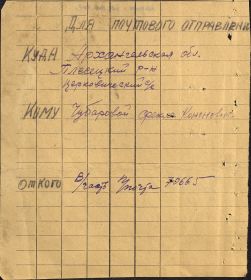 Для почтового отправления
Куда Архангельская обл.
Плесецкий р-н
Церковический с/с
Кому Чубаровой Кононовне
От кого В/часть Почта 70665